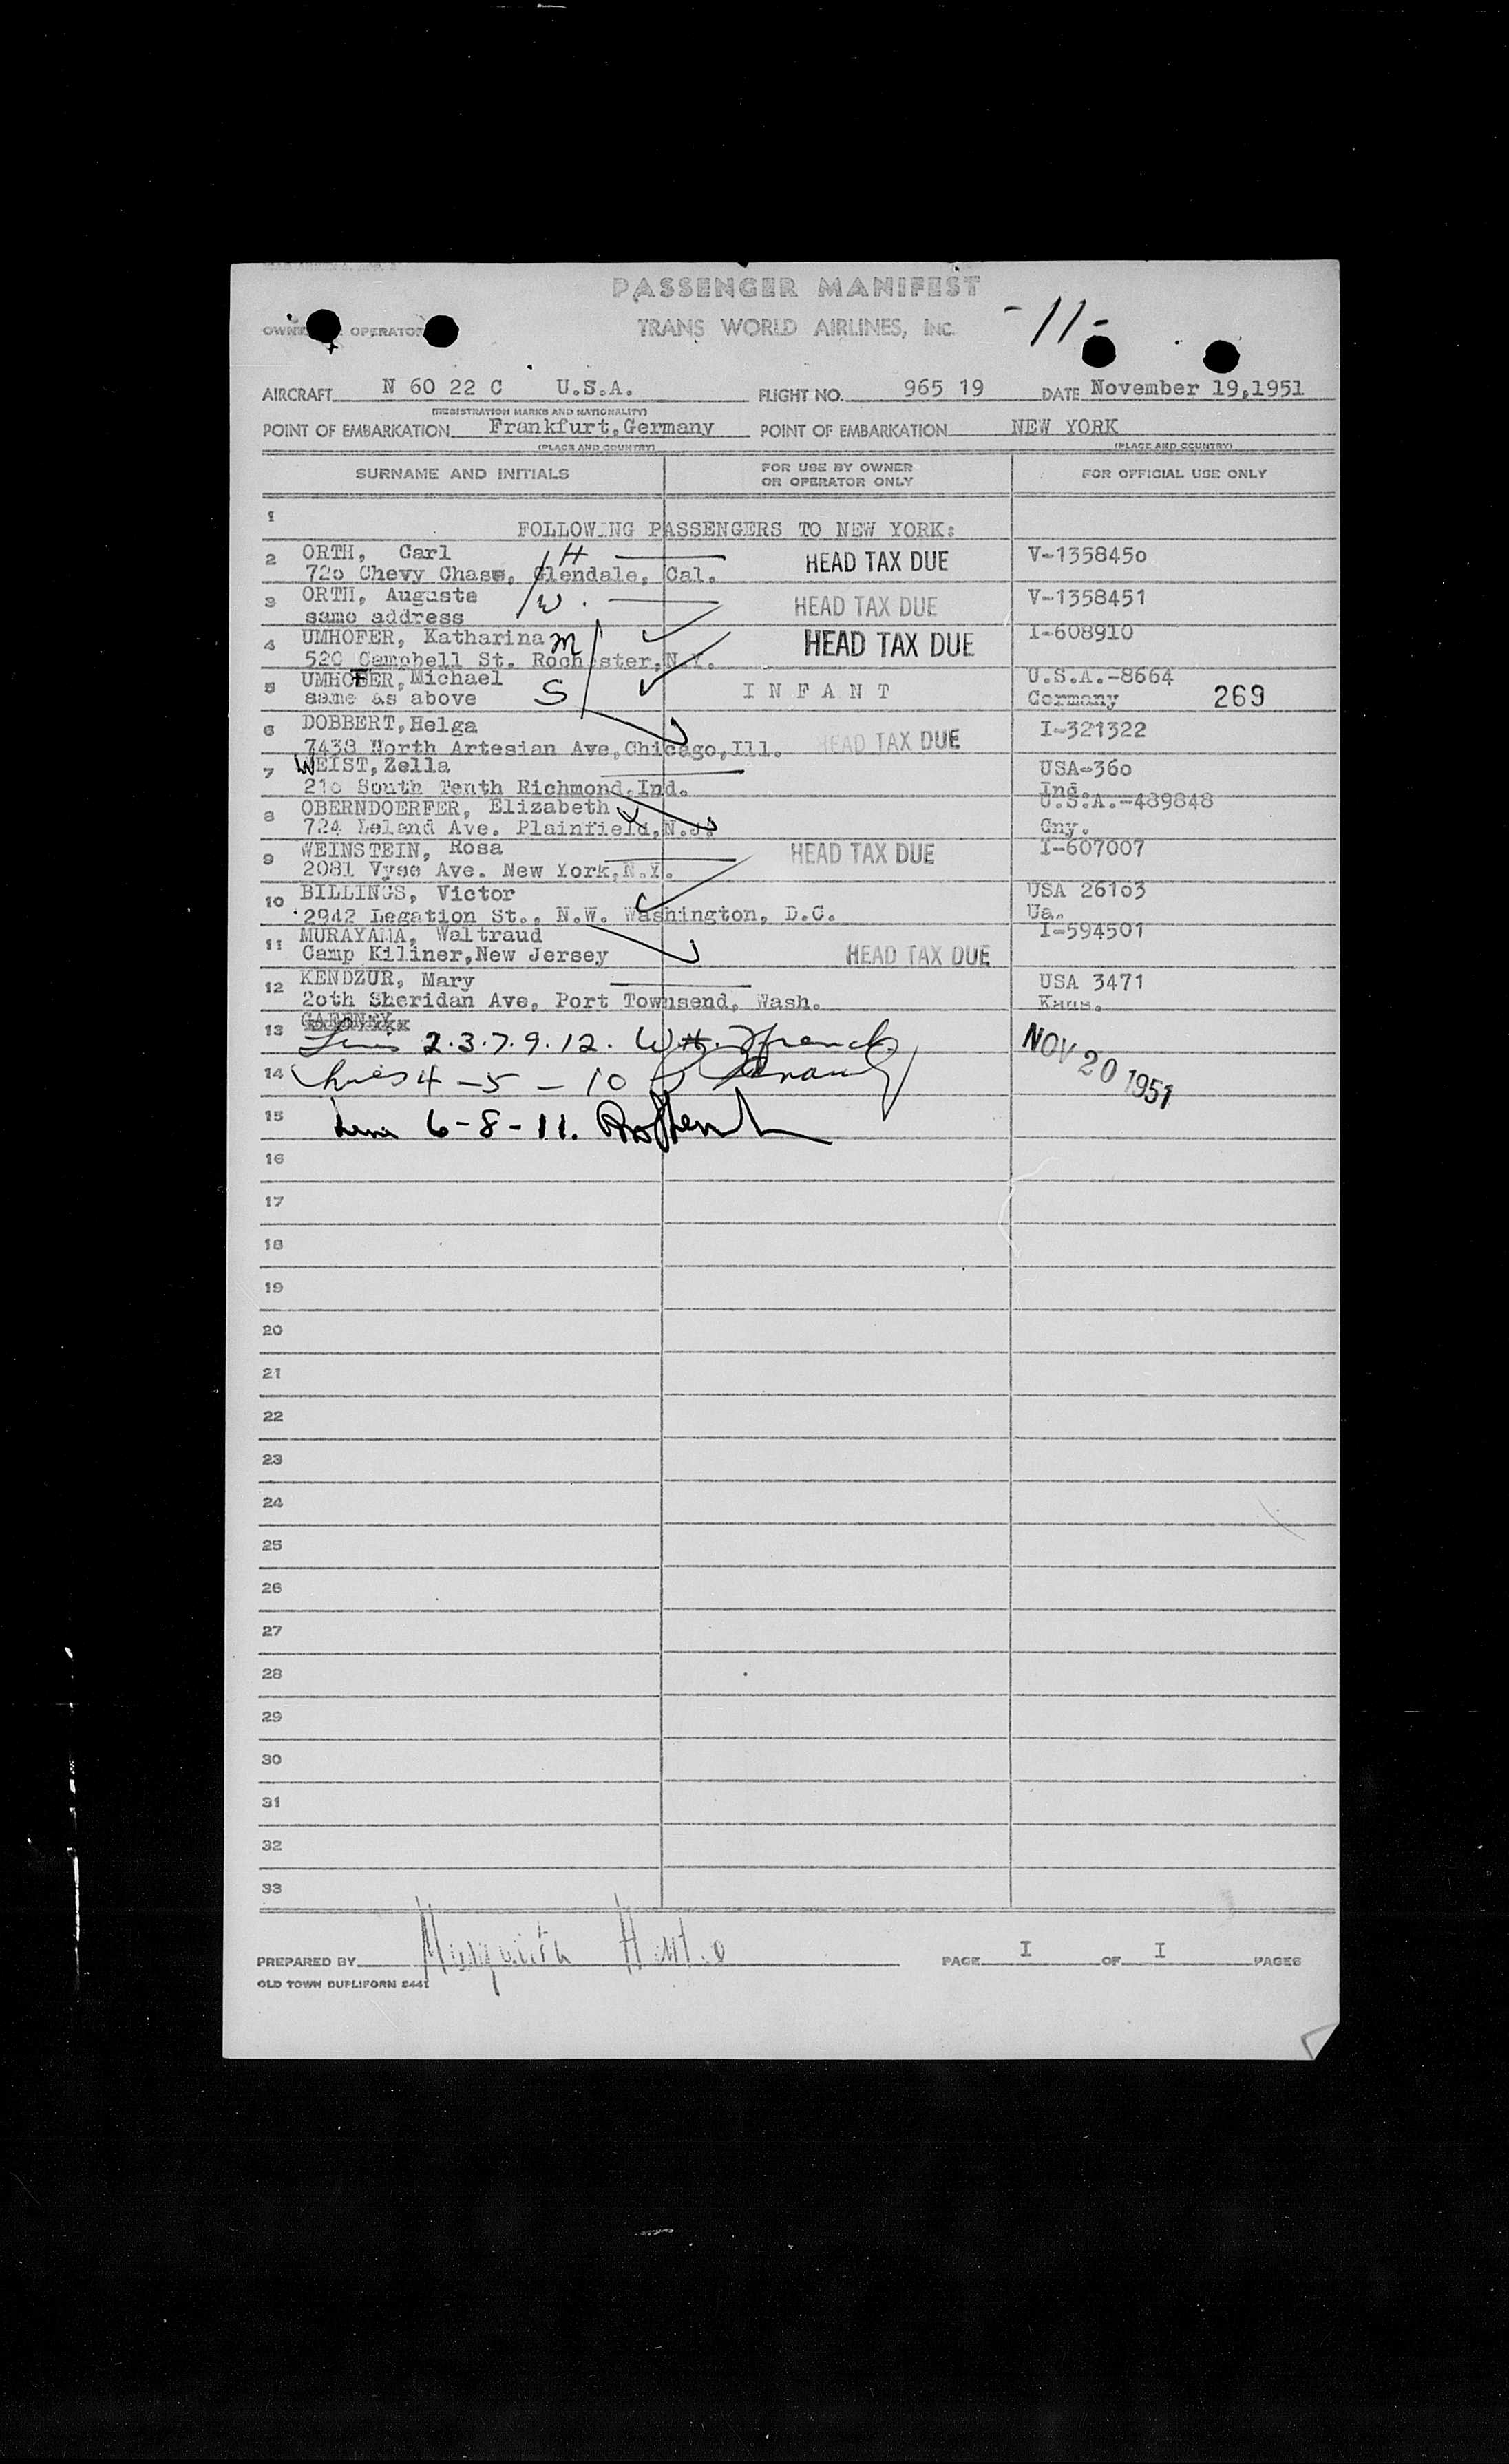 PASSENGER MANIFEST
OPERATOR TRANS WORLD AIRLINES, INC. -11-
AIRCRAFT N 60 22 C U.S.A. FLIGHT NO. 965 19 DATE November 19,1951
(REGISTRATION MARKS AND NATIONALITY)
POINT OF EMBARKATION Frankfurt,Germany POINT OF EMBARKATION NEW YORK
(PLACE AND COUNTRY) (PLACE AND COUNTRY)
SURNAME AND INITIALS FOR USE BY OWNER OR OPERATOR ONLY FOR OFFICIAL USE ONLY
1
FOLLOWING PASSENGERS TO NEW YORK:
2 ORTH, Carl H HEAD TAX DUE V-1358450
72o Chevy Chase, Glendale, Cal.
3 ORTH, Auguste W. HEAD TAX DUE V-1358451
same address
4 UMHOFER, Katharina M HEAD TAX DUE I-608910
520 Campbell St. Rochester,N.Y.
5 UMHOFER,Michael S I N F A N T U.S.A.-8664
same as above Germany 269
6 DOBBERT,Helga I-321322
7438 North Artesian Ave,Chicago,Ill. HEAD TAX DUE
7 WEIST,Zella USA-36o
21o South Tenth Richmond,Ind. Ind.
8 OBERNDOERFER, Elizabeth U.S.A.-489848
724 Leland Ave. Plainfield,N.J. Gny.
9 WEINSTEIN, Rosa HEAD TAX DUE I-607007
2081 Vyse Ave. New York,N.Y.
10 BILLINGS, Victor USA 261o3
2942 Legation St., N.W. Washington, D.C. Ua.
11 MURAYAMA, Waltraud I-594501
Camp Kiliner,New Jersey HEAD TAX DUE
12 KENDZUR, Mary USA 3471
2oth Sheridan Ave, Port Townsend, Wash. Kans.
13 2.3.7.9.12. NOV 20 1951
14 4-5-10
15 6-8-11.
16
17
18
19
20
21
22
23
24
25
26
27
28
29
30
31
32
33
PREPARED BY PAGE I OF I PAGES
OLD TOWN DUPLIFORM 8441